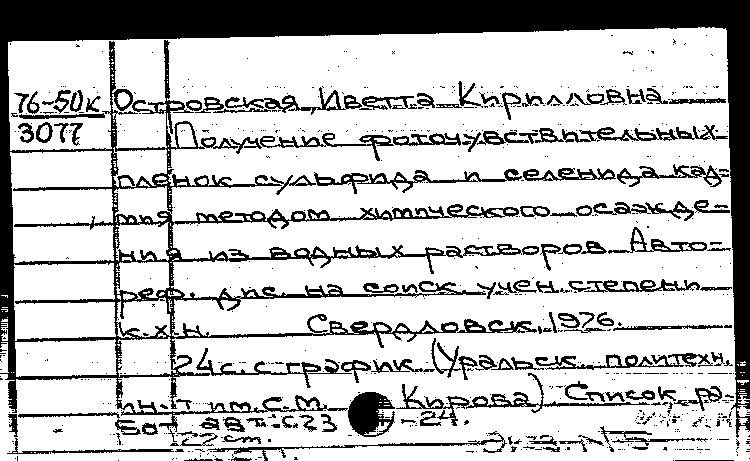 76-50к Островская, Иветта Кирилловна
3077 Получение фоточувствительных
пленок сульфида и селенида кад-
мия методом химического осажде-
ния из водных растворов. Авто-
реф. дис. на соиск. учен. степени
к.х.н. Свердловск, 1976.
24 с. с график. (Уральск. политехн.
ин-т им. С.М. Кирова) Список ра-
бот авт: с 23 -24.
22 cm.